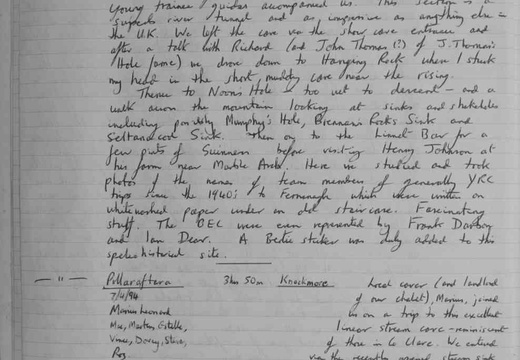 young trainee guides accompanied us. This section is a
superb river tunnel and as impressive as anything else in
the U.K. We left the cave via the show cave entrance and
after a talk with Richard (and John Thomas (?) of J. Thomas's
Hole fame) we drove down to Hanging Rock where I stuck
my head in the short, muddy cave near the rising.
Thence to Noon's Hole - too wet to descend - and a
walk across the mountain looking at sinks and shakeholes
including possibly Murphy's Hole, Brennan's Rocks Sink and
Sink. Then on to the Linnet Bar for a
few pints of Guinness before visiting Henry Johnson at
his farm near Marble Arch. Here we studied and took
photos of the names of team members of generally YRC
trips since the 1940s to Fermanagh which were written on
whitewashed paper under an old staircase. Fascinating
stuff. The BEC were even represented by Frank Darbon
and Ian Dear. A Bertie sticker was duly added to this
speleohistorical site.
— " — Pollaraftera 3hr 50m Knockmore
7/4/94
Local caver (and landlord
of our chalet), Marius, joined
us on a trip to this excellent
linear stream cave - reminiscent
of those in Co Clare. We entered
via the recently opened stream sink
Marius Leonard
Me, Martin, Estelle,
Vince, Davey, Steve,
Roz